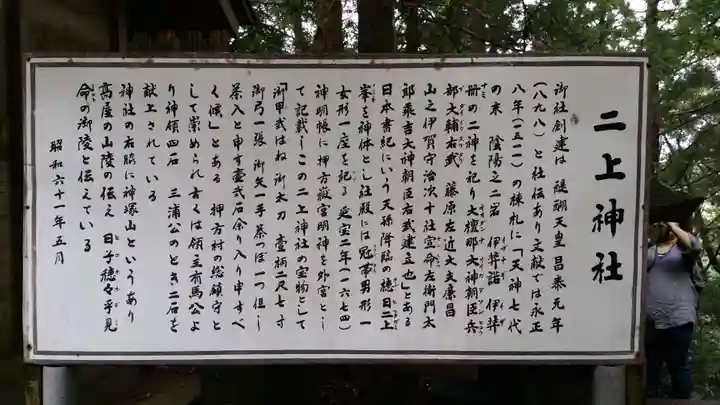 二上神社
御社創建は 醍醐天皇 昌泰元年
(八九八)と社伝あり文献では永正
八年(一五一一)の棟札に「天神七代
の末 陰陽之二岩 伊弉諾 伊弉
冊の二神を祀り大檀那大神朝臣兵
部大輔右武 藤原左近大夫廉昌
山之伊賀守治次十社宣命左衛門太
郎乗吉大神朝臣右武建立也」とある
日本書紀にいう天孫降臨の穂日二上
峯を神体とし社殿には冠帯男形一
女形一座を記る 延宝二年(一六七四)
神明帳に押方嶽宮明神を外宮とし
て記載しこの二上神社の宝物として
「御甲弐はね 御太刀 壹柄二尺七寸
御弓一張 御矢一手 茶つぼ一つ 但し
茶入と申す壹弐石余り入り申すべ
く候」とある 押方村の総鎮守と
して崇められ古くは領主有馬公よ
り神領四石 三浦公のとき二石を
献上されている
神社の右脇に神塚山というあり
高屋の山陵の伝え 日子穂々手見
命の御陵と伝えている
昭和六十一年五月